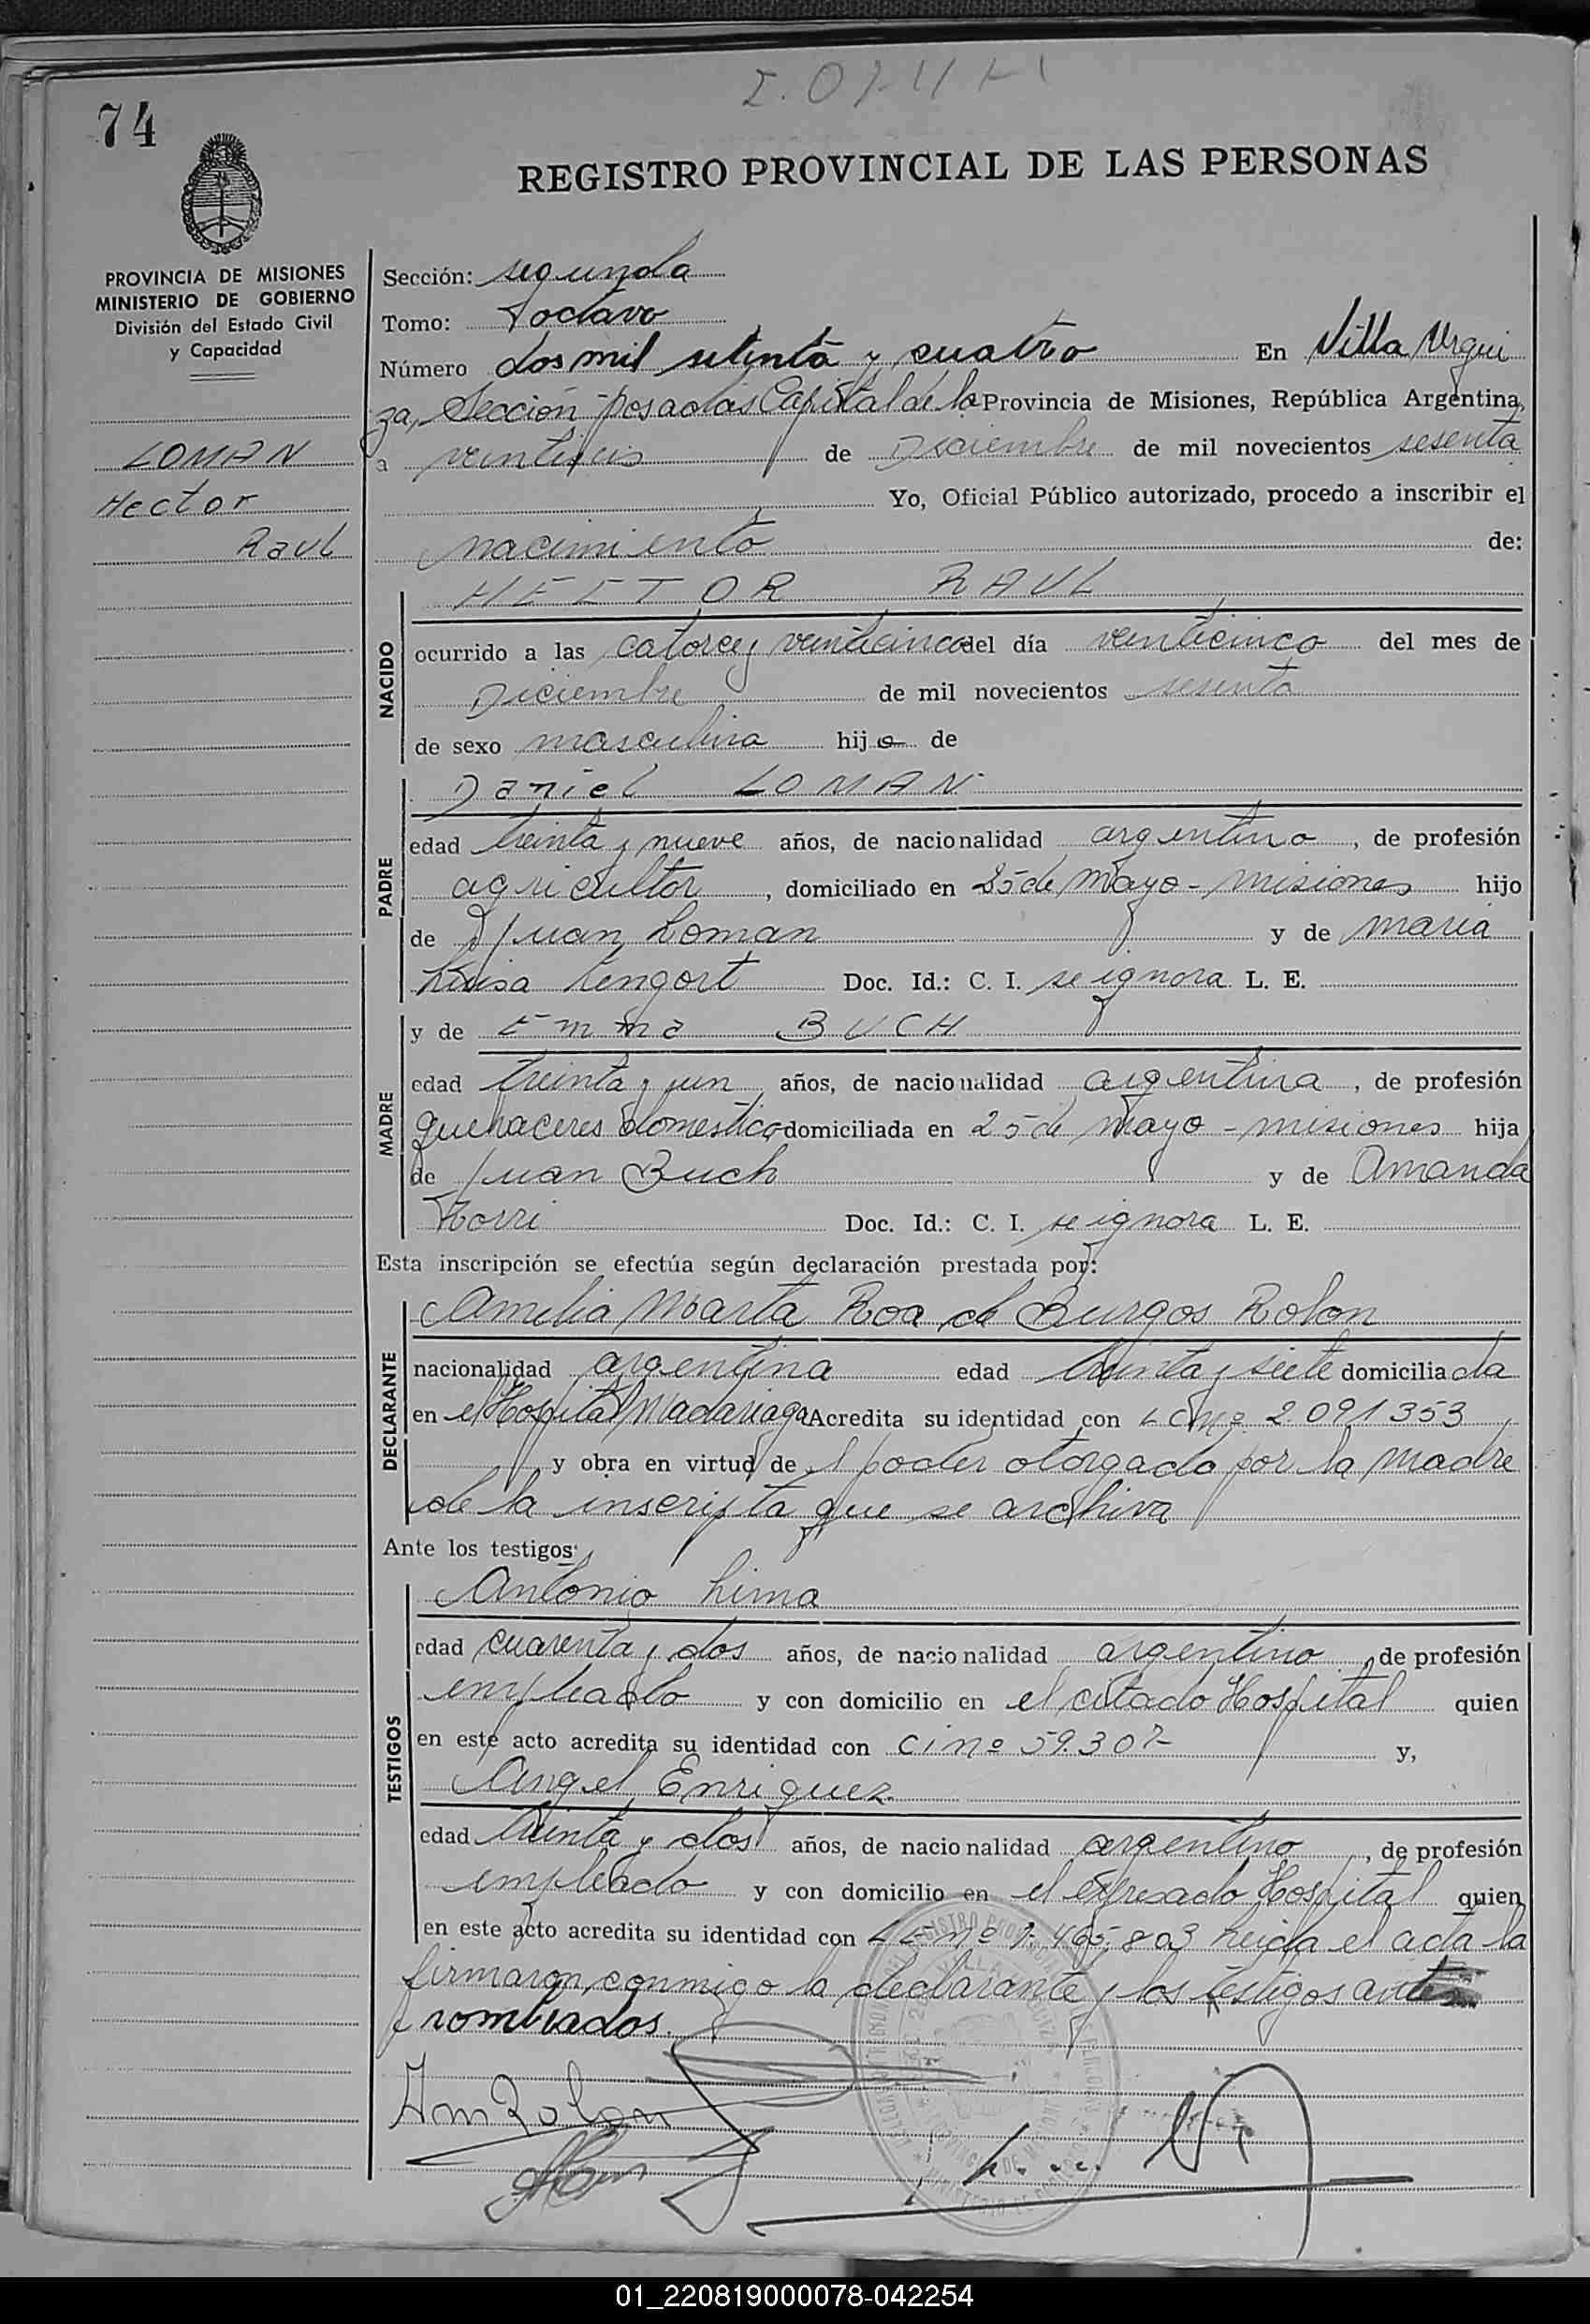 74
REGISTRO PROVINCIAL DE LAS PERSONAS
PROVINCIA DE MISIONES
MINISTERIO DE GOBIERNO
División del Estado Civil
y Capacidad
LOMAN
Hector
Raul
Sección: segunda
Tomo: octavo
Número dos mil setenta y cuatro En Villa Urqui
za, Sección posadas Capital de la Provincia de Misiones, República Argentina,
a veintiseis de Diciembre de mil novecientos sesenta
Yo, Oficial Público autorizado, procedo a inscribir el
nacimiento de:
HECTOR RAUL
NACIDO
ocurrido a las catorce y veinticinco del día veinticinco del mes de
Diciembre de mil novecientos sesenta
de sexo masculino hijo de
PADRE
Daniel LOMAN
edad treinta y nueve años, de nacionalidad argentino, de profesión
agricultor, domiciliado en 25 de Mayo - misiones hijo
de Juan Loman y de maria
Luisa Lengort Doc. Id.: C. I. se ignora L. E.
MADRE
y de Emma BUCH
edad treinta y un años, de nacionalidad argentina, de profesión
quehaceres domestico, domiciliada en 25 de mayo - misiones hija
de Juan Buch y de Amanda
Doc. Id.: C. I. se ignora L. E.
Esta inscripción se efectúa según declaración prestada por:
DECLARANTE
Amelia Marta Roa de Burgos Rolon
nacionalidad argentina edad treinta y siete domiciliada
en el Hospital Madariaga Acredita su identidad con LC nº 2.091353
y obra en virtud de l poder otorgado por la madre
de la inscripta que se archiva
Ante los testigos:
TESTIGOS
Antonio Lima
edad cuarenta y dos años, de nacionalidad argentino, de profesión
empleado y con domicilio en el citado Hospital quien
en este acto acredita su identidad con Ci nº 59.307 y,
Angel Enriquez
edad treinta y dos años, de nacionalidad argentino, de profesión
empleado y con domicilio en el expresado Hospital quien
en este acto acredita su identidad con LE nº 7.465.803 Leida el acta la
firmaron, conmigo la declarante y los testigos antes
nombrados.
Rolon
01_220819000078-042254